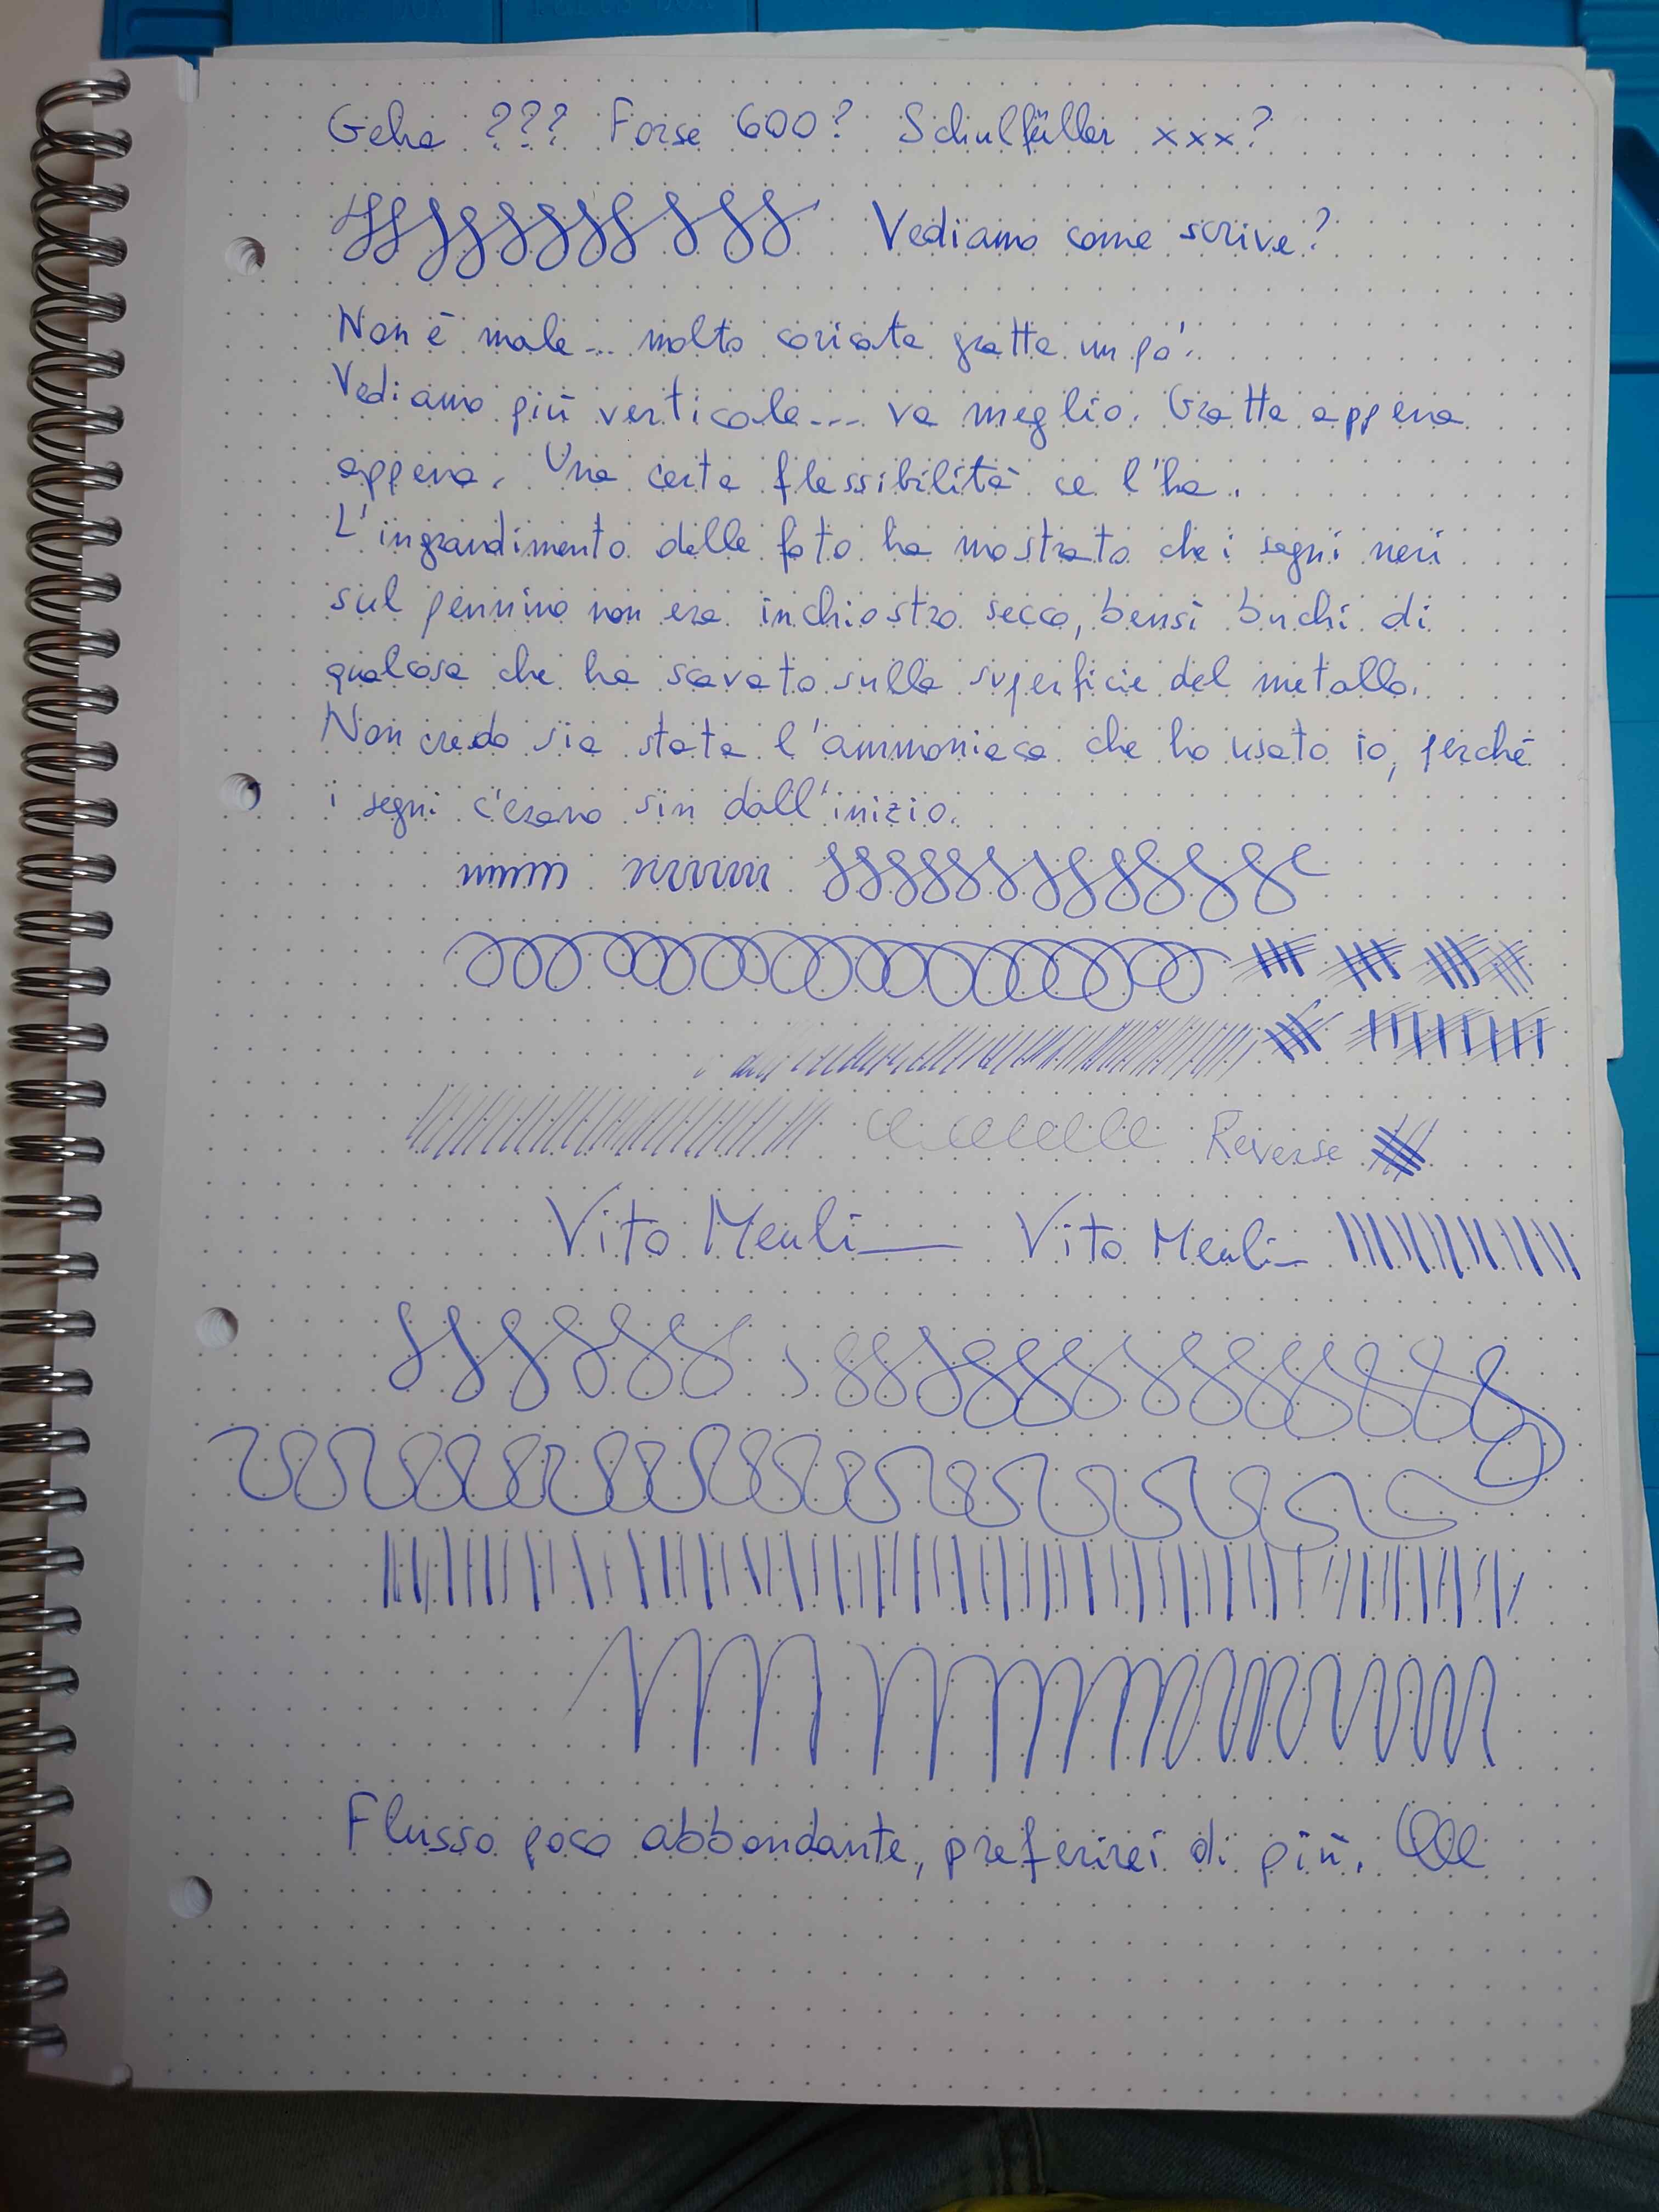 Geha ??? Forse 600? Schulfüller xxx?
Vediamo come scrive?
Non è male... molto coricata gratta un pò.
Vediamo più verticale... va meglio. Gratta appena
appena. Una certa flessibilità ce l'ha.
L'ingrandimento delle foto ha mostrato che i segni neri
sul pennino non era inchiostro secco, bensì buchi di
qualcosa che ha scavato sulla superficie del metallo.
Non credo sia stata l'ammoniaca che ho usato io, perché
i segni c'erano sin dall'inizio.
Reverse
Vito Vito
Flusso poco abbondante, preferirei di più.